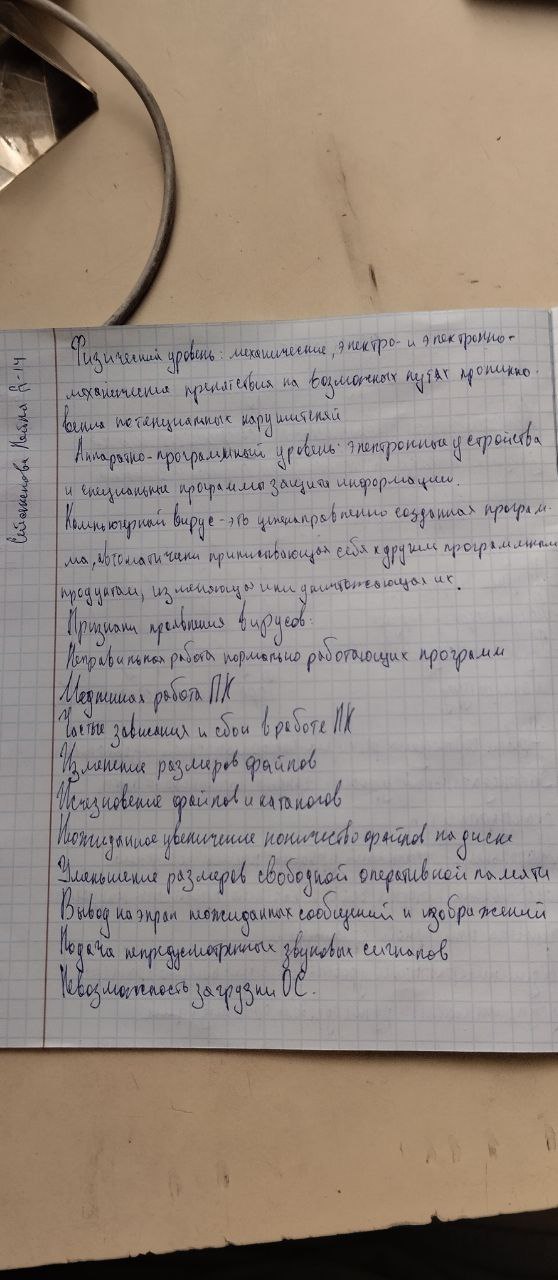 Физический уровень: механические, электро- и электронно-
механические препятствия на возможных путях проникно-
вения потенциальных нарушителей
Аппаратно-программный уровень: электронные устройства
и специальные программы защиты информации.
Компьютерный вирус - это целенаправленно созданная програм-
ма, автоматически приписывающая себя к другим программным
продуктам, изменяющая или уничтожающая их.
Признаки проявления вирусов:
Неправильная работа нормально работающих программ
Медленная работа ПК
Частые зависания и сбои в работе ПК
Изменение размеров файлов
Исчезновение файлов и каталогов
Неожиданное увеличение количество файлов на диске
Уменьшение размеров свободной оперативной памяти
Вывод на экран неожиданных сообщений и изображений
Подача непредусмотренных звуковых сигналов
Невозможность загрузки ОС.